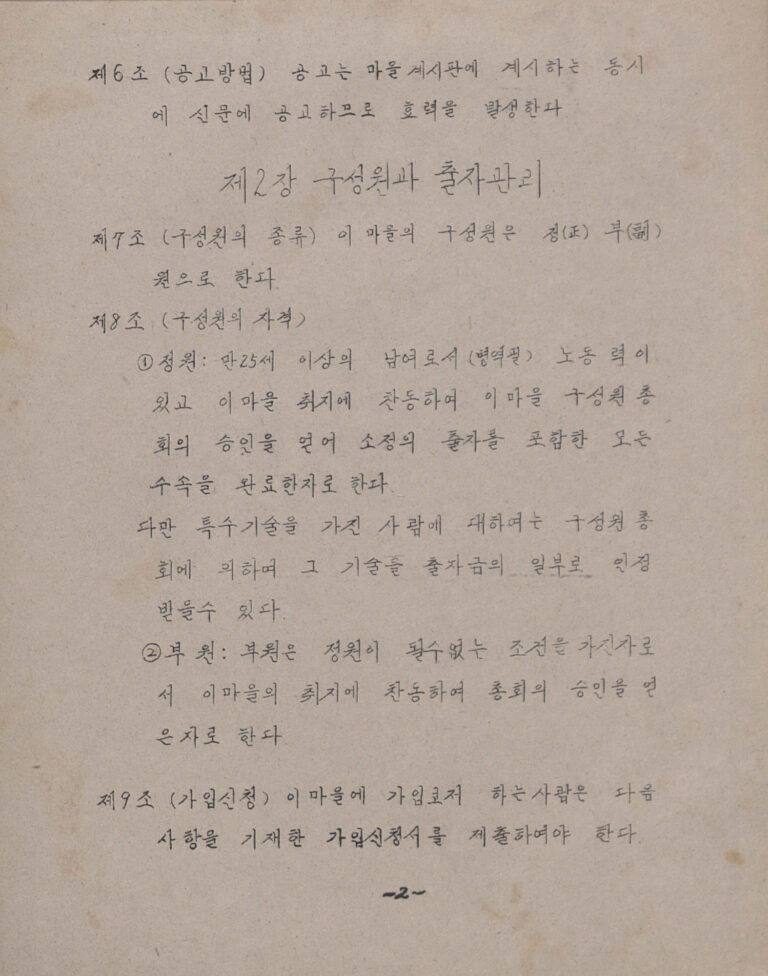 제6조 (공고방법) 공고는 마을게시판에 게시하는 동시
에 신문에 공고하므로 효력을 발생한다
제2장 구성원과 출자관리
제7조 (구성원의 종류) 이 마을의 구성원은 정(正) 부(副)
원으로 한다.
제8조 (구성원의 자격)
① 정원: 만25세 이상의 남여로서 (병역필) 노동력이
있고 이마을 취지에 찬동하여 이마을 구성원 총
회의 승인을 얻어 소정의 출자를 포함한 모든
수속을 완료한자로 한다.
다만 특수기술을 가진 사람에 대하여는 구성원 총
회에 의하며 그 기술을 출자금의 일부로 인정
받을수 있다.
② 부원: 부원은 정원이 될수없는 조건을 가진자로
서 이마을의 취지에 찬동하여 총회의 승인을 얻
은자로 한다
제9조 (가입신청) 이마을에 가입코저 하는사람은 다음
사항을 기재한 가입신청서를 제출하여야 한다.
-2-